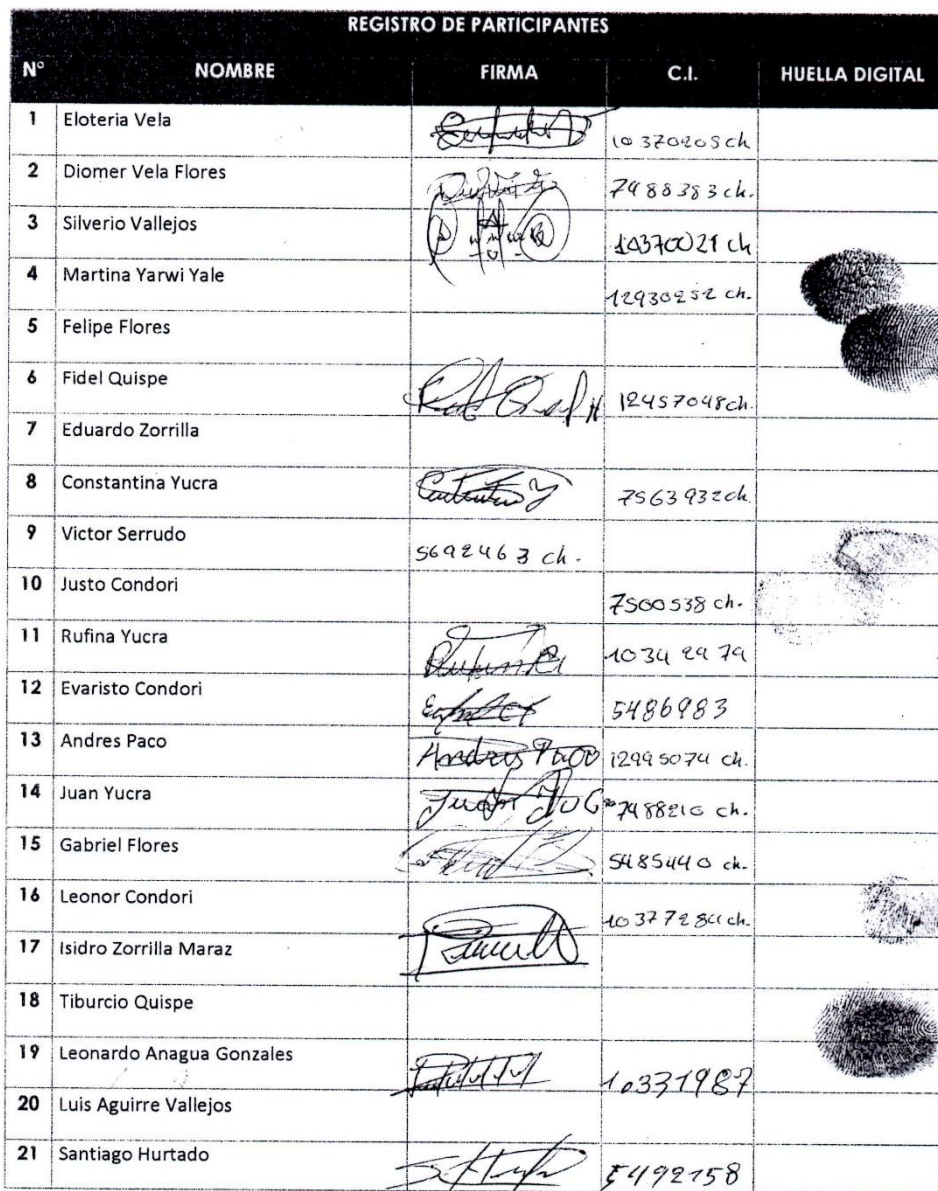 REGISTRO DE PARTICIPANTES
N° NOMBRE FIRMA C.I. HUELLA DIGITAL
1 Eloteria Vela 10370209 ch
2 Diomer Vela Flores 7488383 ch.
3 Silverio Vallejos 10370021 ch
4 Martina Yarwi Yale 12930252 ch.
5 Felipe Flores
6 Fidel Quispe 12457048 ch.
7 Eduardo Zorrilla
8 Constantina Yucra 7563932 ch.
9 Victor Serrudo 5692463 ch.
10 Justo Condori 7500538 ch.
11 Rufina Yucra 10342979
12 Evaristo Condori 5486983
13 Andres Paco Andres Paco 12995074 ch.
14 Juan Yucra Juan 7488210 ch.
15 Gabriel Flores 5485440 ch.
16 Leonor Condori 10377284 ch.
17 Isidro Zorrilla Maraz
18 Tiburcio Quispe
19 Leonardo Anagua Gonzales 10331987
20 Luis Aguirre Vallejos
21 Santiago Hurtado 5492158